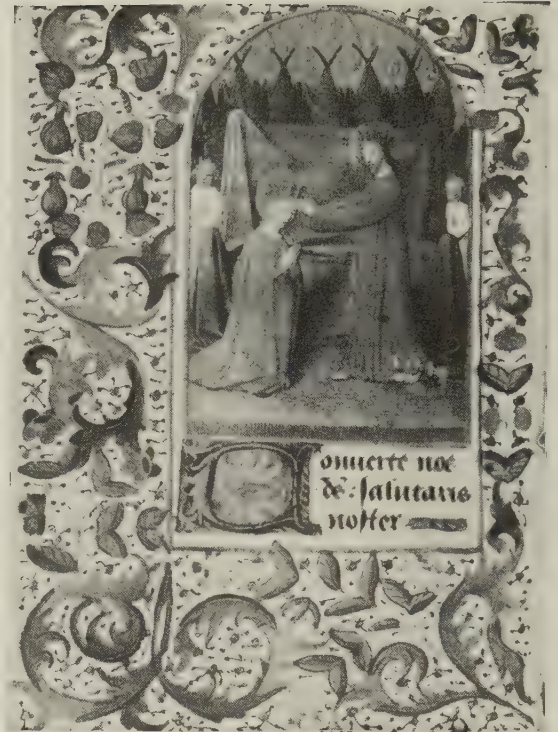 Conuerte nos
ds: salutaris
noster